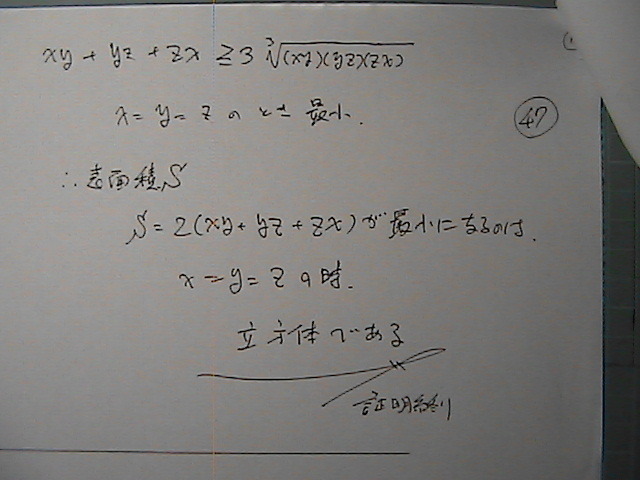 xy + yz + zx ≧ 3 ∛(xy)(yz)(zx)
x = y = z のとき 最小.
47
∴ 表面積 S
S = 2(xy + yz + zx) が 最小になるのは.
x = y = z の時.
立方体である
証明終り